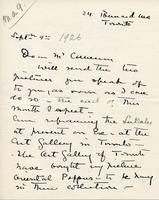 24 Bernard Ave
Toronto
Sept 9th 1926
Dear Mr
will send the two
pictures you speak of
to you, as soon as I can
do so – the end of this
month I expect.
Am reframing the
at present on Ex. at the
Art Gallery in Toronto –
The Art Gallery of Toronto
have bought my picture
Oriental Poppies – to be hung
in their collection –